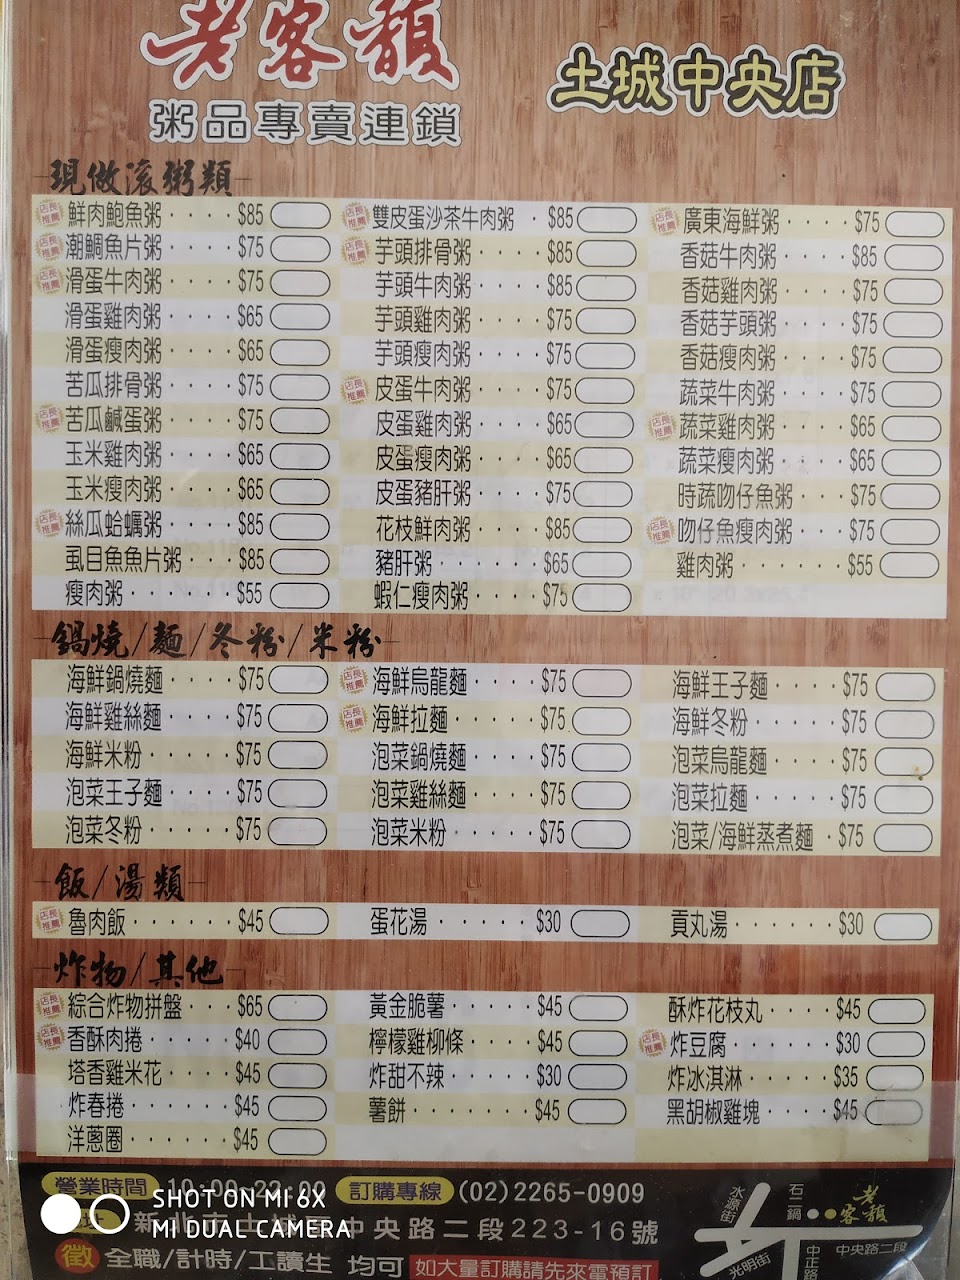 老客馥
粥品專賣連鎖
土城中央店
現做滾粥類
店長推薦 鮮肉鮑魚粥····$85
店長推薦 潮鯛魚片粥····$75
店長推薦 滑蛋牛肉粥····$75
滑蛋雞肉粥····$65
滑蛋瘦肉粥····$65
苦瓜排骨粥····$75
店長推薦 苦瓜鹹蛋粥····$75
玉米雞肉粥····$65
玉米瘦肉粥····$65
店長推薦 絲瓜蛤蠣粥····$85
虱目魚魚片粥···$85
瘦肉粥······$55
店長推薦 雙皮蛋沙茶牛肉粥·$85
店長推薦 芋頭排骨粥····$85
芋頭牛肉粥····$85
芋頭雞肉粥····$75
芋頭瘦肉粥····$75
店長推薦 皮蛋牛肉粥····$75
皮蛋雞肉粥····$65
皮蛋瘦肉粥····$65
皮蛋豬肝粥····$75
花枝鮮肉粥····$85
豬肝粥······$65
蝦仁瘦肉粥····$75
店長推薦 廣東海鮮粥····$75
香菇牛肉粥····$85
香菇雞肉粥····$75
香菇芋頭粥····$75
香菇瘦肉粥····$75
蔬菜牛肉粥····$75
店長推薦 蔬菜雞肉粥····$65
蔬菜瘦肉粥····$65
時蔬吻仔魚粥···$75
店長推薦 吻仔魚瘦肉粥···$75
雞肉粥······$55
鍋燒/麵/冬粉/米粉
海鮮鍋燒麵····$75
海鮮雞絲麵····$75
海鮮米粉·····$75
泡菜王子麵····$75
泡菜冬粉·····$75
店長推薦 海鮮烏龍麵····$75
店長推薦 海鮮拉麵·····$75
泡菜鍋燒麵····$75
泡菜雞絲麵····$75
泡菜米粉·····$75
海鮮王子麵····$75
海鮮冬粉·····$75
泡菜烏龍麵····$75
泡菜拉麵·····$75
泡菜/海鮮蒸煮麵·$75
飯/湯類
店長推薦 魯肉飯······$45
蛋花湯······$30
貢丸湯······$30
炸物/其他
店長推薦 綜合炸物拼盤···$65
店長推薦 香酥肉捲·····$40
塔香雞米花····$45
炸春捲······$45
洋蔥圈······$45
黃金脆薯·····$45
檸檬雞柳條····$45
炸甜不辣·····$30
薯餅·······$45
酥炸花枝丸····$45
店長推薦 炸豆腐······$30
炸冰淇淋·····$35
黑胡椒雞塊····$45
營業時間 10:00-22:00 訂購專線 (02)2265-0909
新北市土城 中央路二段223-16號
徵 全職/計時/工讀生 均可 如大量訂購請先來電預訂
水源街
石二鍋
老客馥
中央路二段
光明街
中正路
SHOT ON MI 6X
MI DUAL CAMERA